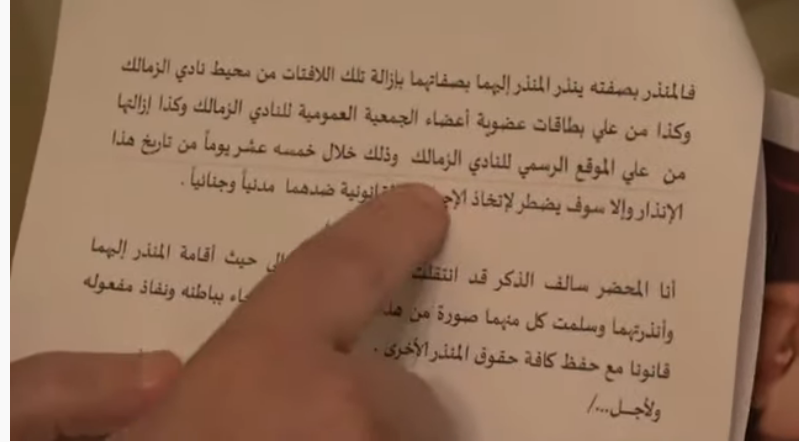 فالمنذر بصفته ينذر المنذر إليهما بصفاتهما بإزالة تلك اللافتات من محيط نادي الزمالك
وكذا من علي بطاقات عضوية أعضاء الجمعية العمومية للنادي الزمالك وكذا إزالتها
من علي الموقع الرسمي للنادي الزمالك وذلك خلال خمسه عشر يوماً من تاريخ هذا
الإنذار وإلا سوف يضطر لإتخاذ القانونية ضدهما مدنياً وجنائياً .
أنا المحضر سالف الذكر قد انتقلت حيث أقامة المنذر إليهما
وأنذرتهما وسلمت كل منهما صورة من بباطنه ونفاذ مفعوله
قانونا مع حفظ كافة حقوق المنذر الأخرى .
ولأجــل.../